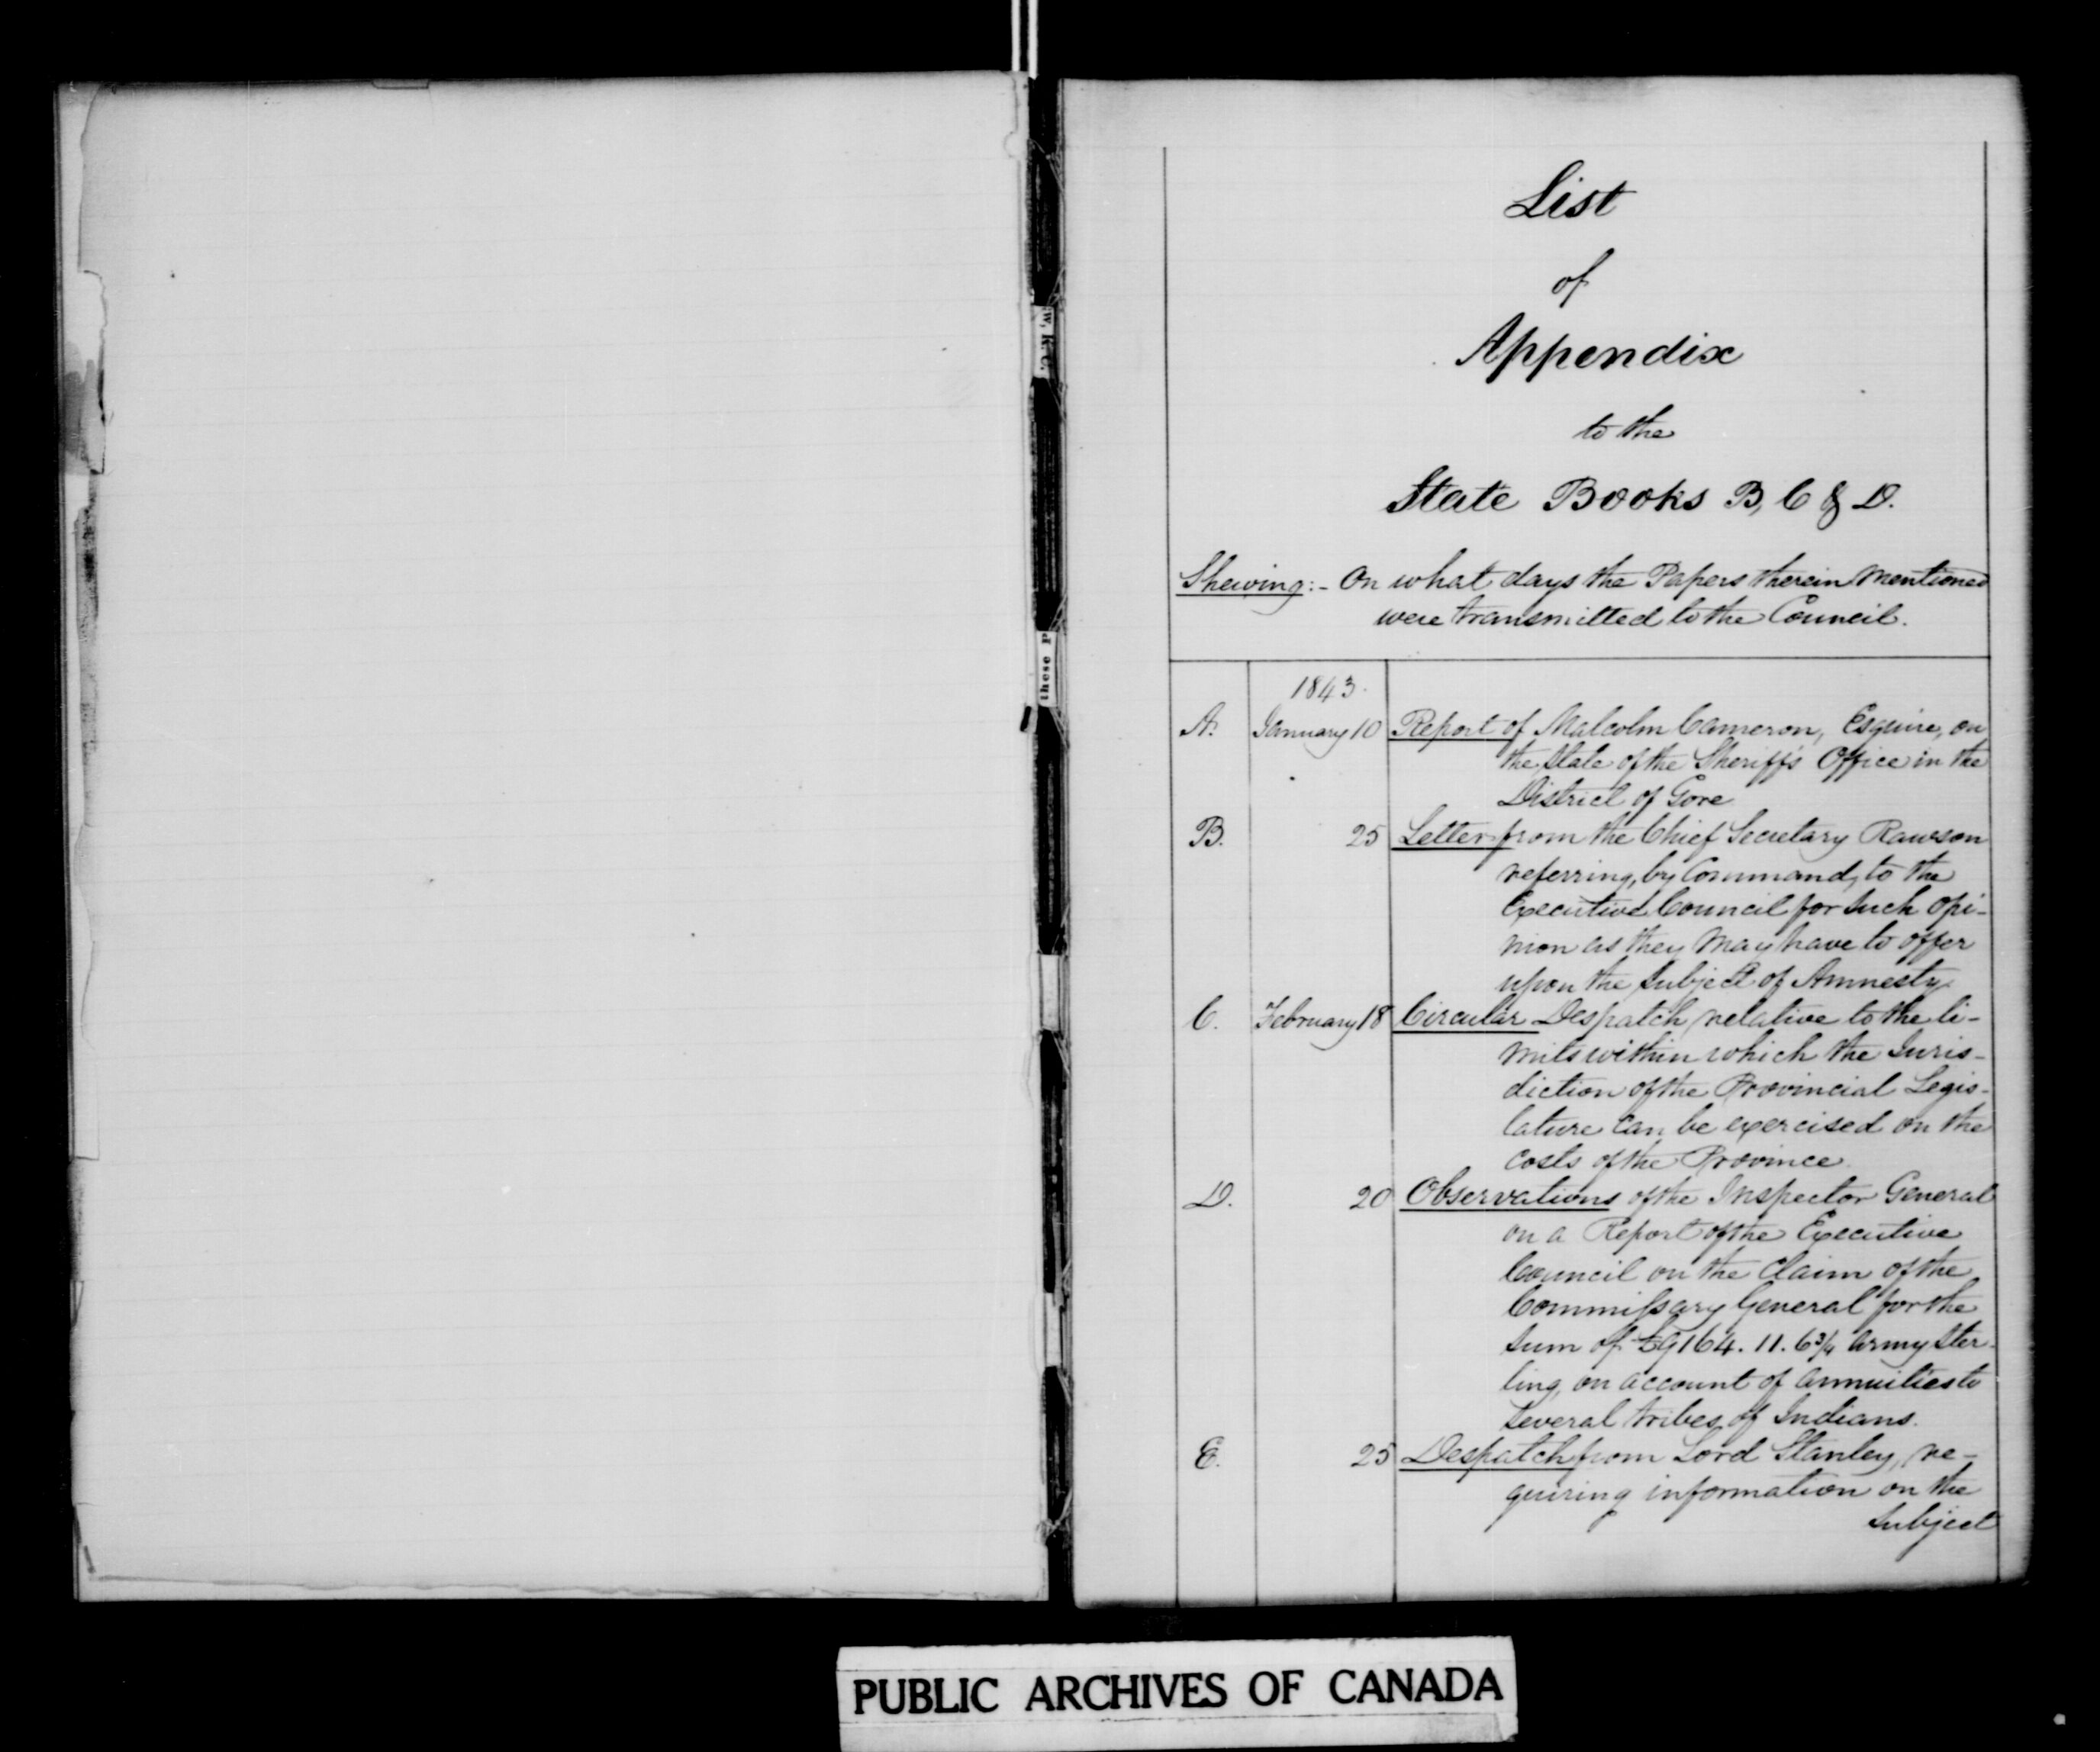 List
of
Appendix
to the
State Books B, C & D.
Shewing:- On what days the Papers therein mentioned
were transmitted to the Council.
1843.
A. January 10 Report of Malcolm Cameron, Esquire, on
the state of the Sheriff's Office in the
District of Gore
B. 25 Letter from the Chief Secretary Rawson
referring, by Command, to the
Executive Council for such opi-
nion as they may have to offer
upon the subject of Amnesty.
C. February 18 Circular Despatch relative to the li-
mits within which the Juris-
diction of the Provincial Legis-
lature can be exercised on the
costs of the Province.
D. 20 Observations of the Inspector General
on a Report of the Executive
Council on the Claim of the
Commissary General for the
sum of £9164. 11. 6¾ army ster-
ling, on account of annuities to
several tribes of Indians.
E. 25 Despatch from Lord Stanley, re-
quiring information on the
subject
w, K.C.
these P
PUBLIC ARCHIVES OF CANADA